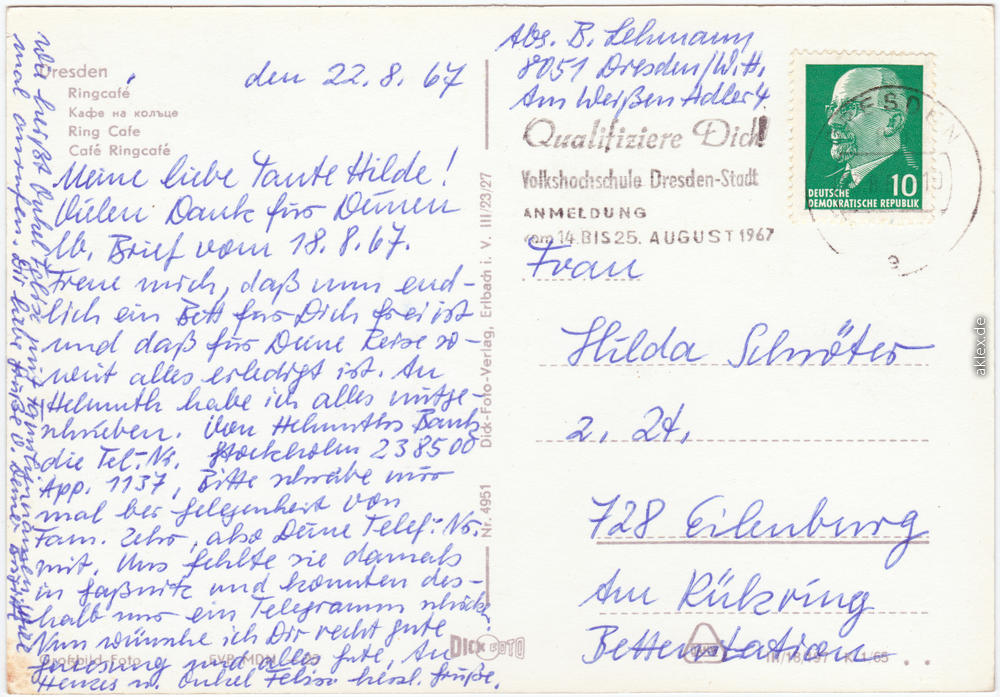 Dresden
Ringcafé
Кафе на кольце
Ring Cafe
Café Ringcafé
den 22.8.67
Meine liebe Tante Hilde!
Vielen Dank für Deinen
lb. Brief vom 18.8.67.
Freue mich, daß nun end-
lich ein Bett für Dich frei ist
und daß für Deine Reise so-
weit alles erledigt ist. An
Helmuth habe ich alles mitge-
schrieben. Von Helmuths Bank
die Tel.-Nr. Stockholm 238500
App. 1137, Bitte schreibe mir
mal bei Gelegenheit von
Fam. Zehr, also Deine Telef.-Nr.
mit. Uns fehlte sie damals
in Gaßnitz und konnten des-
halb nur ein Telegramm schick.
Nun wünsche ich Dir recht gute
Genesung und alles Gute, An
Henzes u. Onkel Felix herzl. Grüße.
Onkel Felix mit
mal anrufen. Dir liebe Grüße v. Deiner Brigitte
Großbild-Foto
DICK FOTO
Nr. 4951 Dick-Foto-Verlag, Erlbach i. V. III/23/27
Abs. B. Lehmann
8051 Dresden/W.H.
Am Weißen Adler 4
Qualifiziere Dich!
Volkshochschule Dresden-Stadt
ANMELDUNG
vom 14. BIS 25. AUGUST 1967
DEUTSCHE
DEMOKRATISCHE REPUBLIK
10
DRESDEN
e
Frau
Hilda Schröter
2. 24.
728 Eilenburg
Am Rükring
Bettenstation
K 1/65
aklex.de